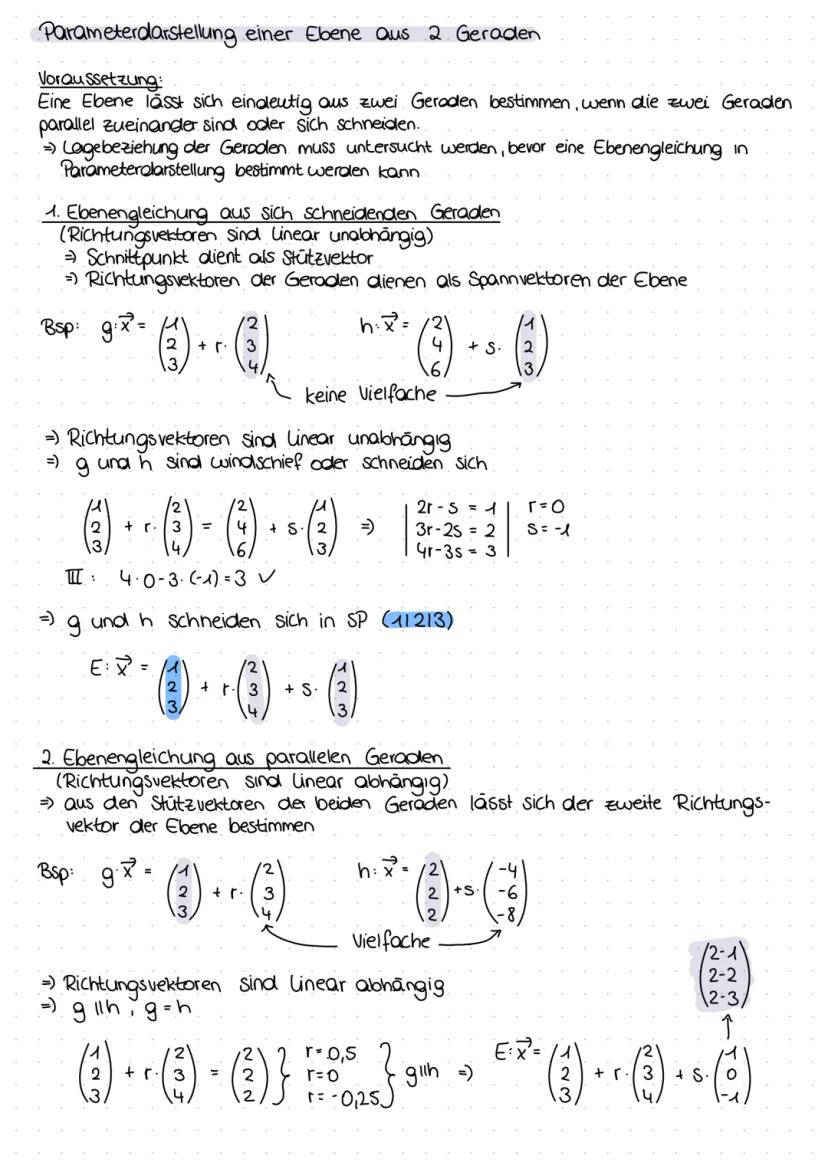 Parameterdarstellung einer Ebene aus 2 Geraden
Voraussetzung:
Eine Ebene lässt sich eindeutig aus zwei Geraden bestimmen, wenn die zwei Geraden
parallel zueinander sind oder sich schneiden.
⇒ Lagebeziehung der Geraden muss untersucht werden, bevor eine Ebenengleichung in
Parameterdarstellung bestimmt werden kann
1. Ebenengleichung aus sich schneidenden Geraden
(Richtungsvektoren sind linear unabhängig)
⇒ Schnittpunkt dient als Stützvektor
⇒ Richtungsvektoren der Geraden dienen als Spannvektoren der Ebene
Bsp: g: x⃗ = (1 2 3) + r · (2 3 4) h: x⃗ = (2 4 6) + s · (1 2 3)
keine Vielfache
⇒ Richtungsvektoren sind linear unabhängig
⇒ g und h sind windschief oder schneiden sich
(1 2 3) + r · (2 3 4) = (2 4 6) + s · (1 2 3) ⇒ | 2r - s = 1 | r = 0
| 3r - 2s = 2 | s = -1
| 4r - 3s = 3 |
III: 4 · 0 - 3 · (-1) = 3 ✓
⇒ g und h schneiden sich in SP (1|2|3)
E: x⃗ = (1 2 3) + r · (2 3 4) + s · (1 2 3)
2. Ebenengleichung aus parallelen Geraden
(Richtungsvektoren sind linear abhängig)
⇒ aus den Stützvektoren der beiden Geraden lässt sich der zweite Richtungs-
vektor der Ebene bestimmen
Bsp: g: x⃗ = (1 2 3) + r · (2 3 4) h: x⃗ = (2 2 2) + s · (-4 -6 -8)
Vielfache
⇒ Richtungsvektoren sind linear abhängig
⇒ g ∥ h, g = h
(2-1 2-2 2-3)
(1 2 3) + r · (2 3 4) = (2 2 2) } r = 0,5 r = 0 r = -0,25 } g ∥ h ⇒ E: x⃗ = (1 2 3) + r · (2 3 4) + s · (1 0 -1)